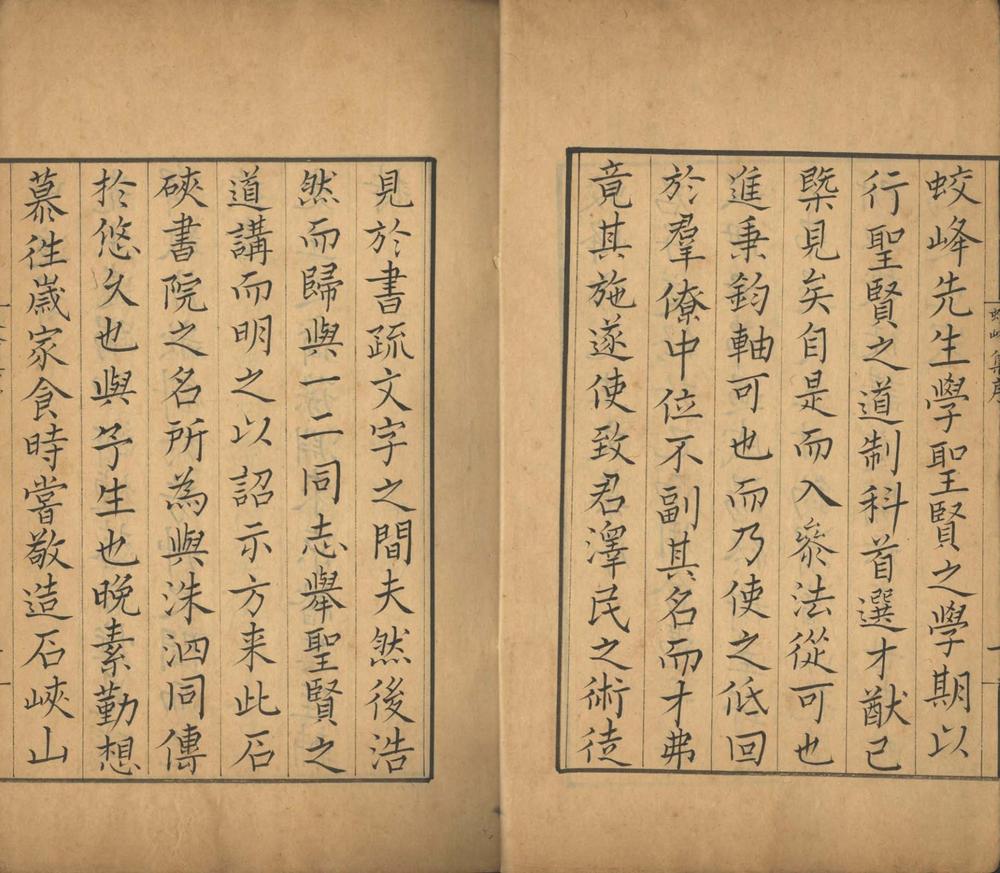 蛟峰集序
蛟峰先生學聖賢之學期以
行聖賢之道制科首選才猷已
槩見矣自是而入叅法從可也
進秉鈞軸可也而乃使之低回
於羣僚中位不副其名而才弗
竟其施遂使致君澤民之術徒
見於書疏文字之間夫然後浩
然而歸與一二同志舉聖賢之
道講而明之以詔示方来此石
硤書院之名所為與洙泗同傳
扵悠久也與予生也晚素勤想
慕徃嵗家食時嘗敬造石峽山